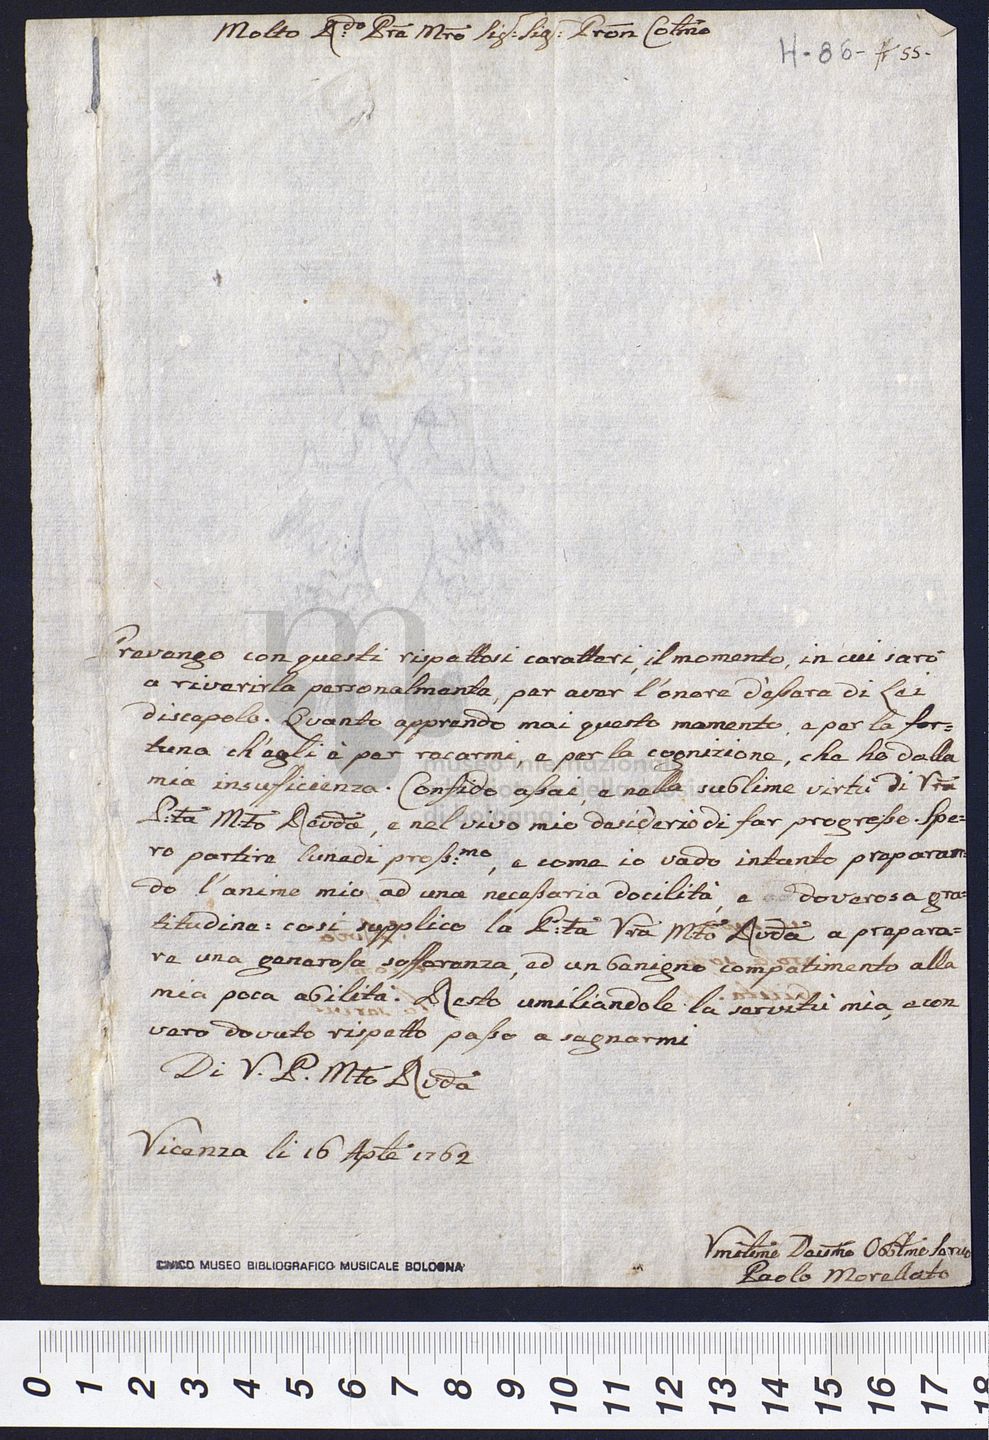 Molto R.do Pre Mro Sig.r Sig.r Pron Colmo
H-86- 55-
Prevengo con questi rispettosi caratteri, il momento, in cui sarò
a riverirla personalmente, per aver l'onore d'essere di Lei
discepolo. Quanto apprendo mai questo momento, e per la for=
tuna ch'egli è per recarmi, e per la cognizione, che ho della
mia insufficienza. Confido assai, e nella sublime virtù di Vra
P:tà Mto Revda, e nel vivo mio desiderio di far progresso. Spe=
ro partire lunedì pross:mo, e come io vado intanto preparan=
do l'anime mio ad una necessaria docilità, e doverosa gra=
titudine: così supplico la P:tà Vra Mto Rvda a prepara=
re una generosa sofferenza, ed un benigno compatimento alla
mia poca abilità. Resto umiliandole la servitù mia, e con
vero dovuto rispetto passo a segnarmi
Di V. P. Mto Rvda
Vicenza li 16 Aple 1762
Vmilme Devme Obblme Servo
Paolo Morellato
CIVICO MUSEO BIBLIOGRAFICO MUSICALE BOLOGNA
museo internazionale
di bologna
0 1 2 3 4 5 6 7 8 9 10 11 12 13 14 15 16 17 18